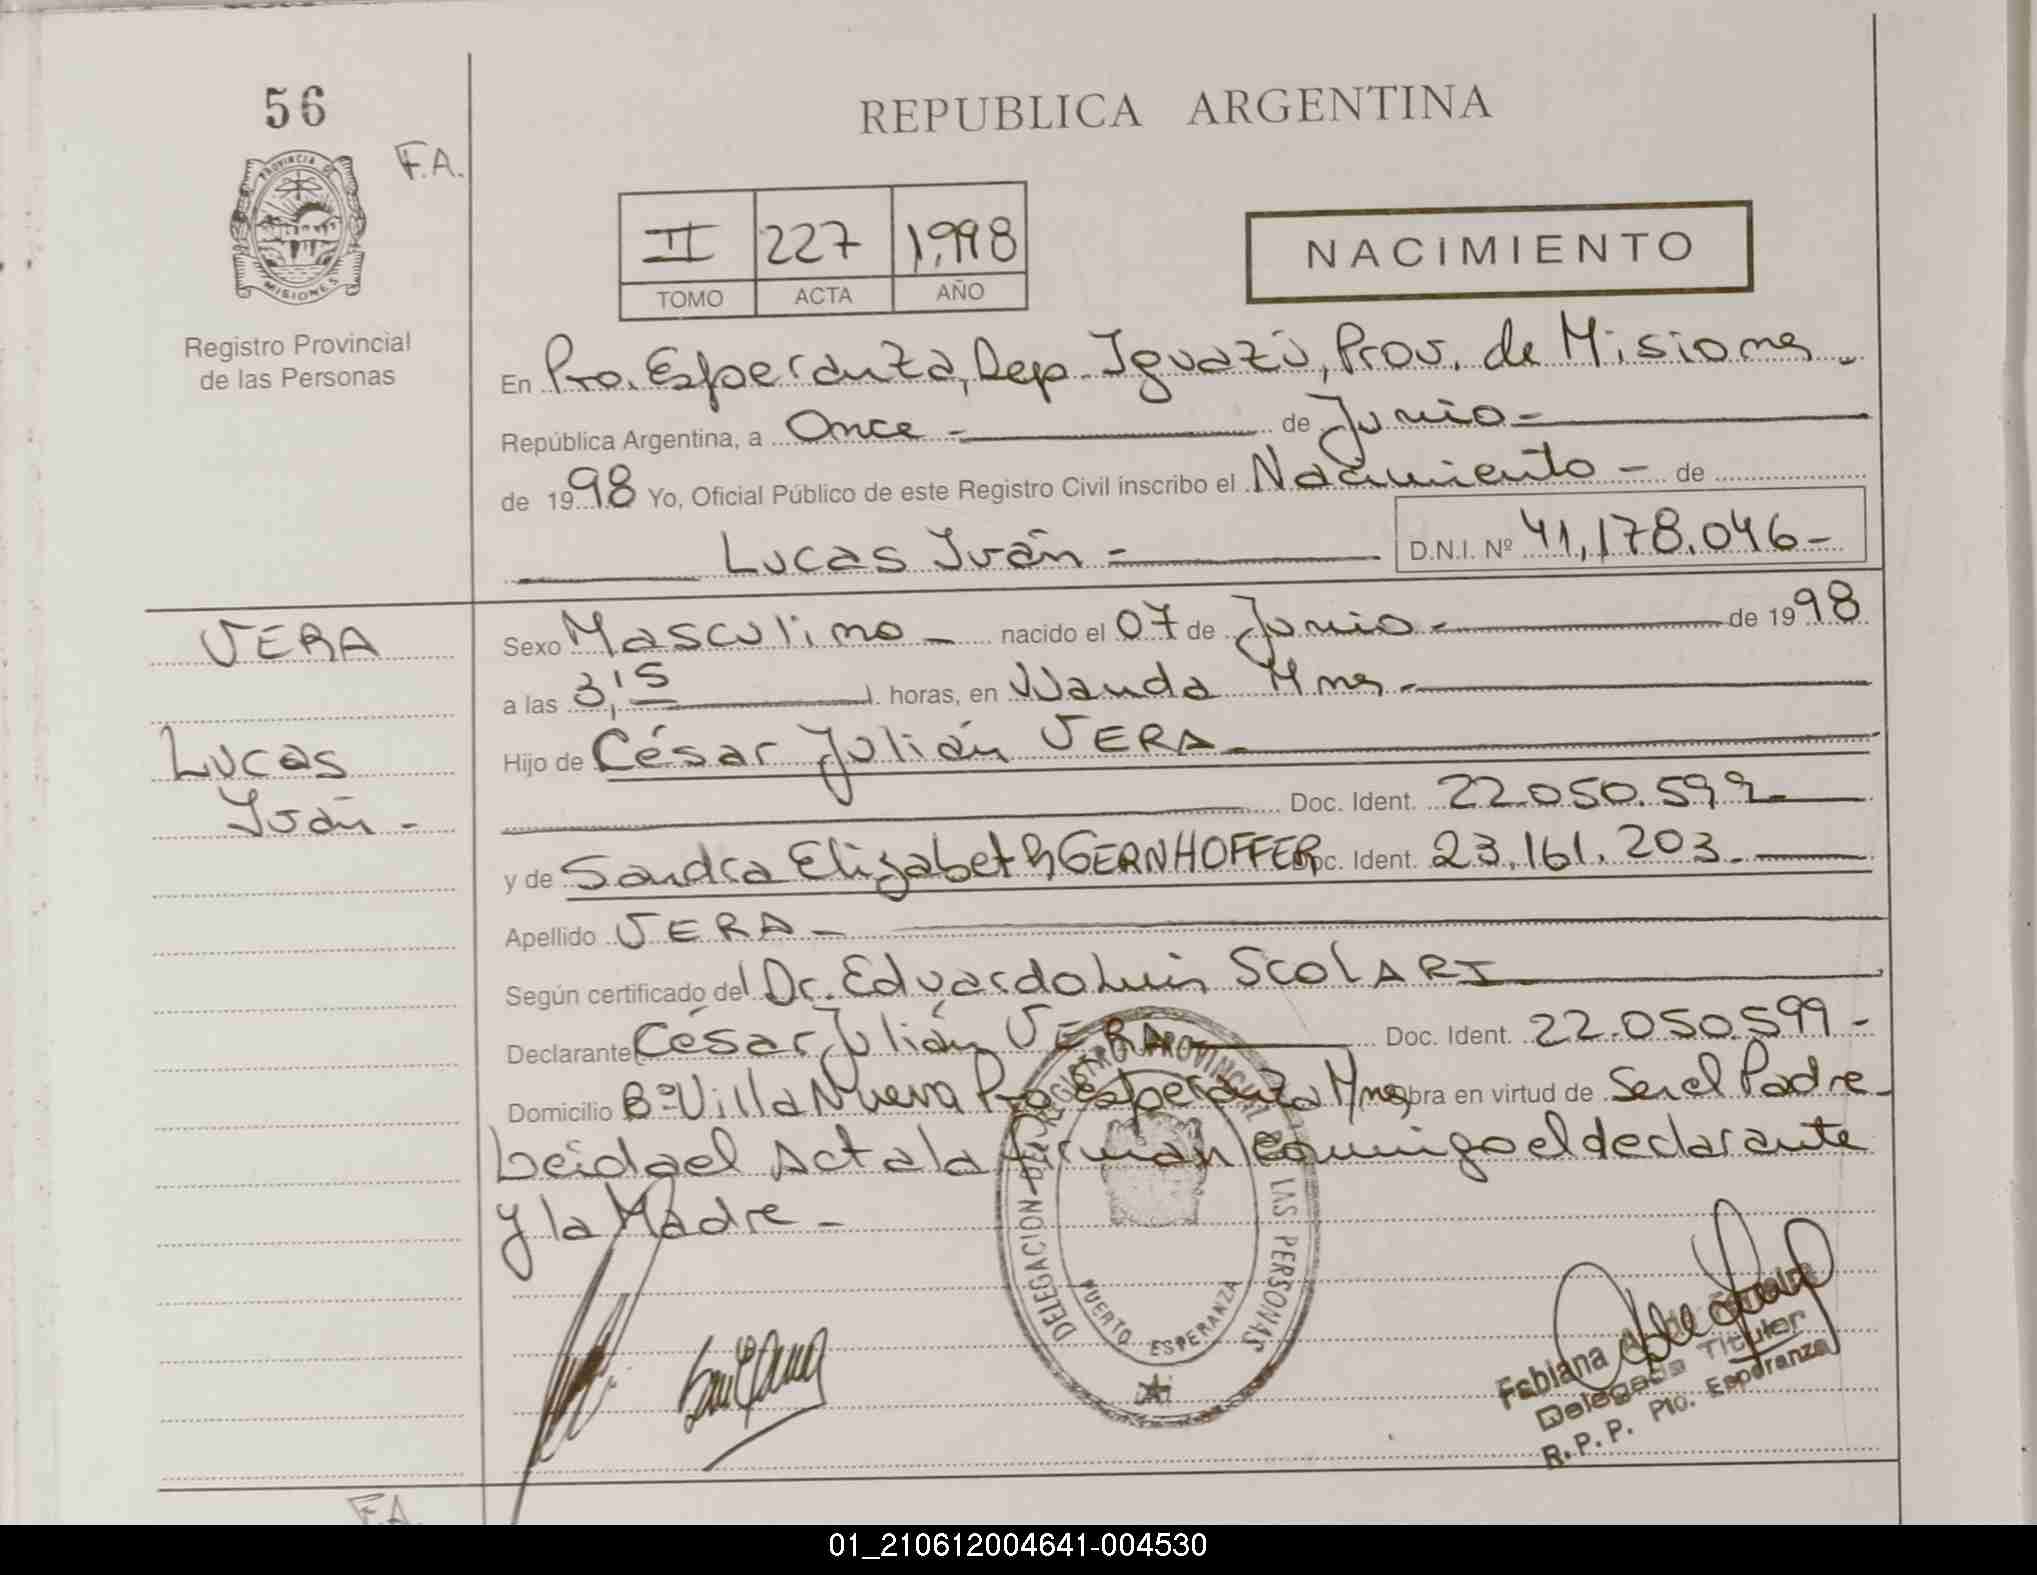 56
F.A.
PROVINCIA DE
MISIONES
Registro Provincial
de las Personas
REPUBLICA ARGENTINA
II 227 1,998
TOMO ACTA AÑO
NACIMIENTO
En Pto. Esperanza, Dep. Iguazú, Prov. de Misiones -
República Argentina, a Once - de Junio -
de 1998 Yo, Oficial Público de este Registro Civil inscribo el Nacimiento - de
Lucas Iván = D.N.I. Nº 41,178.046 -
VERA
Lucas
Iván -
Sexo Masculino - nacido el 07 de Junio - de 1998
a las 3,15 horas, en Wanda Mnes -
Hijo de César Julián VERA -
Doc. Ident. 22.050.599 -
y de Sandra Elizabeth GERNHOFFER Doc. Ident. 23.161.203. -
Apellido VERA -
Según certificado del Dr. Eduardo Luis SCOLARI
Declarante César Julián VERA Doc. Ident. 22.050.599 -
Domicilio Bº Villa Nueva Pto Esperanza Mnes obra en virtud de Ser el Padre -
Leida el Acta la firman conmigo el declarante
y la Madre -
DELEGACION DEL REGISTRO PROVINCIAL DE LAS PERSONAS
PUERTO ESPERANZA
Fabiana
Delegada Titular
R.P.P. Pto. Esperanza
F.A.
01_210612004641-004530